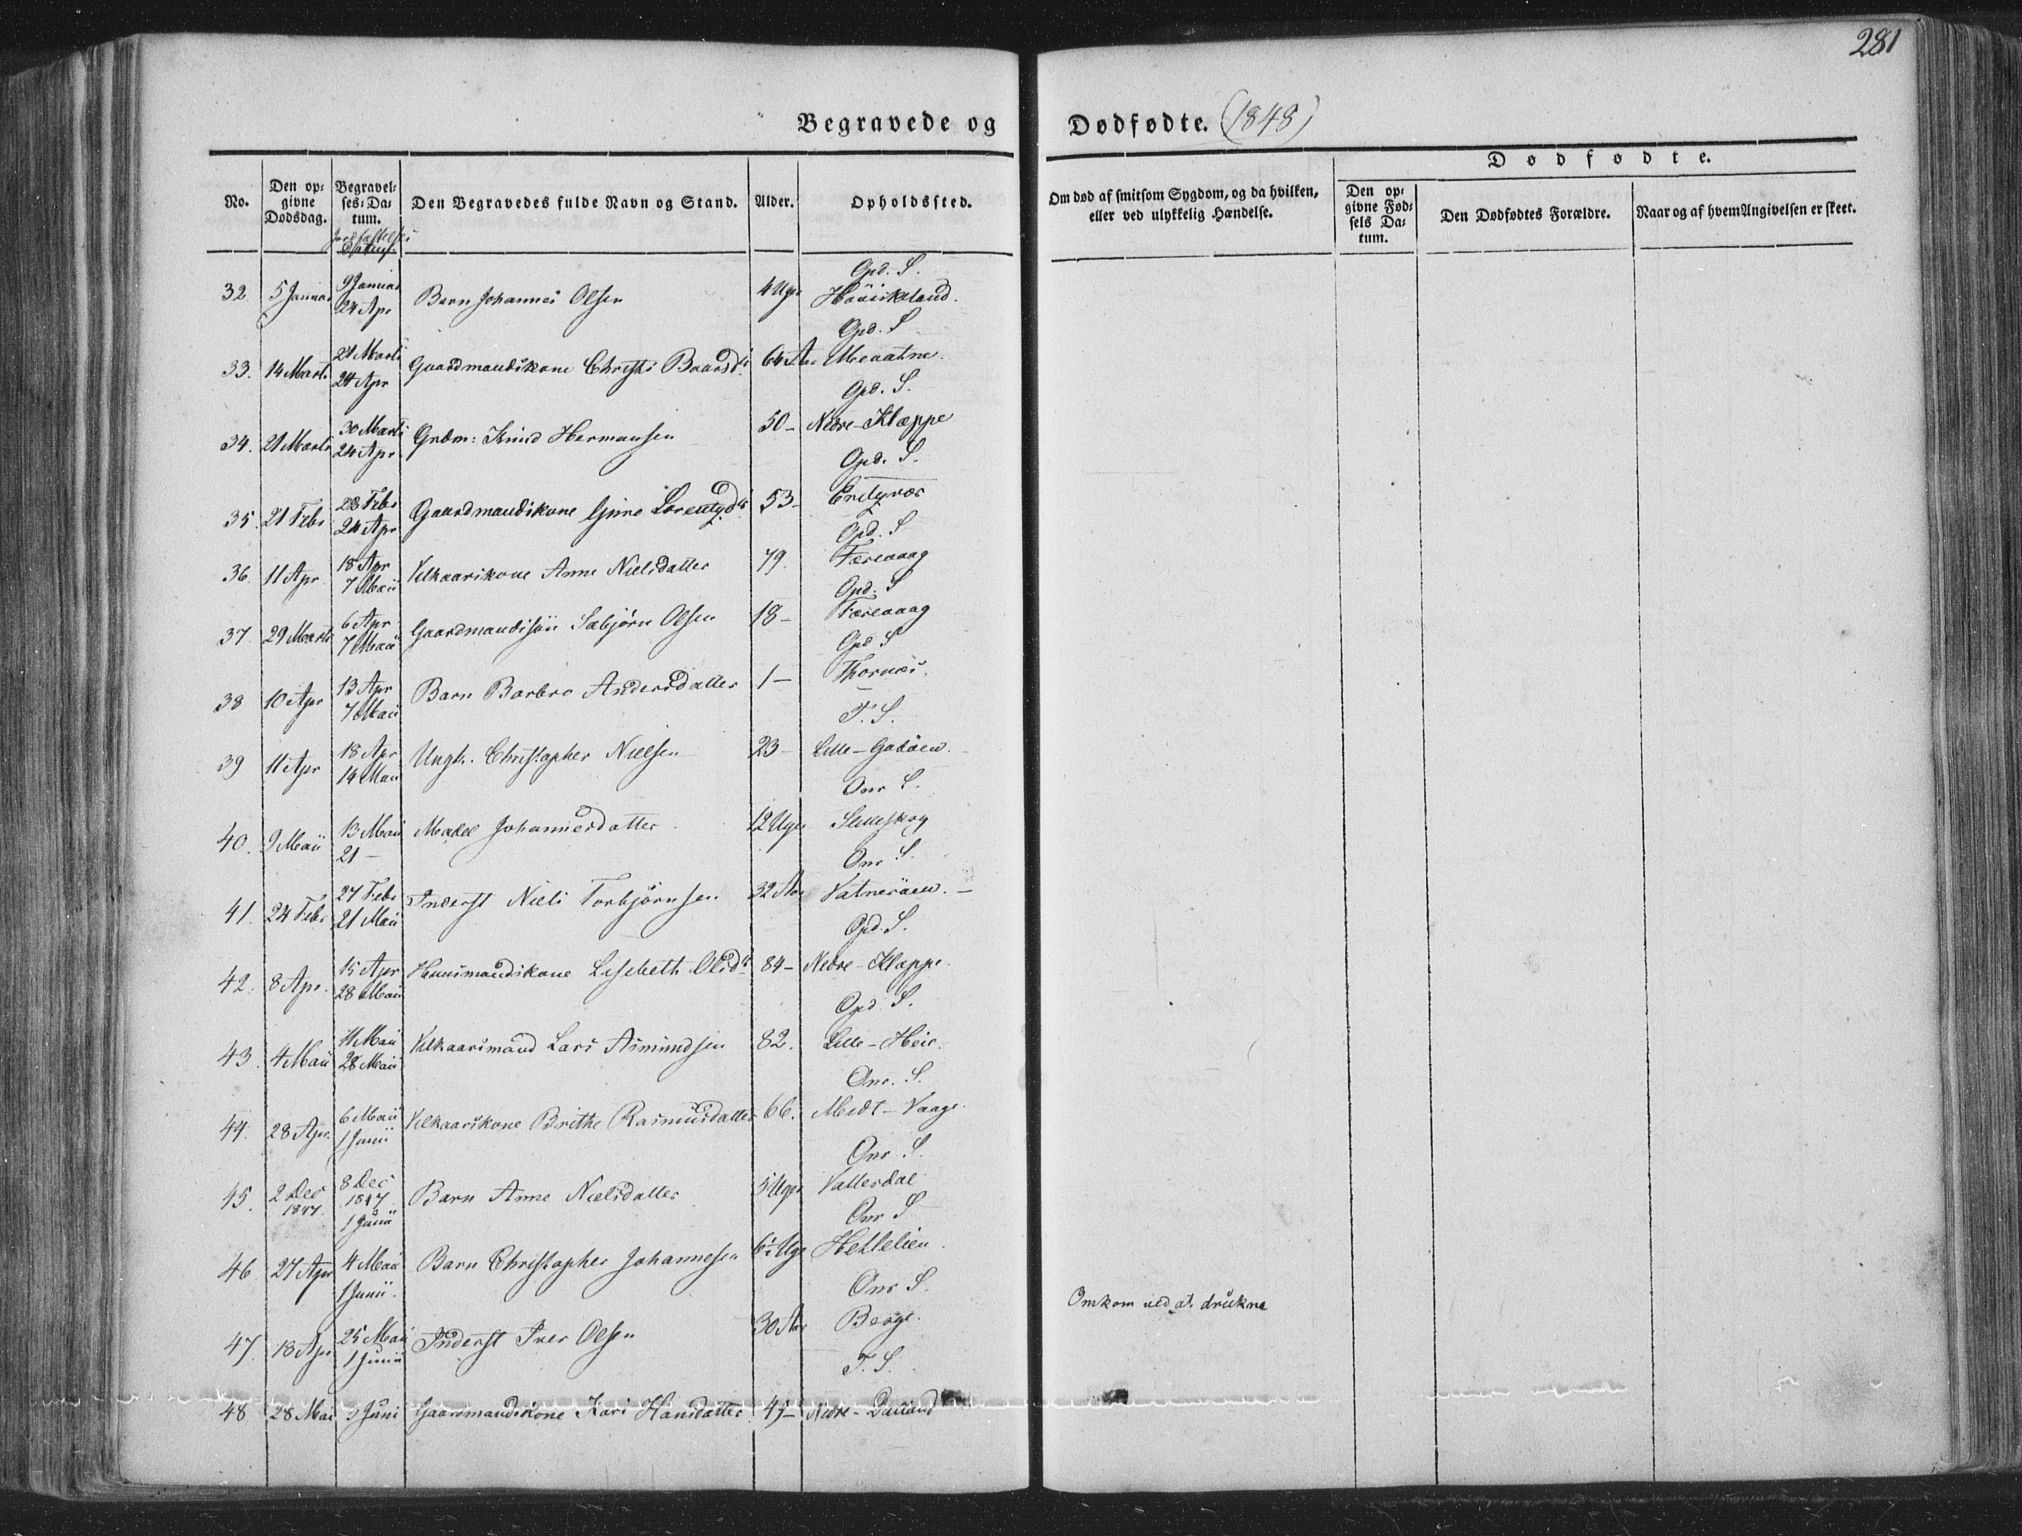 281
Begravede og Dødfødte. (1848)
Dødfødte.
No.
Den opgivne Dødsdag.
Begravelses-Datum.
Den Begravedes fulde Navn og Stand.
Alder.
Opholdssted.
Om død af smitsom Sygdom, og da hvilken, eller ved ulykkelig Hændelse.
Den opgivne Fødsels Datum.
Den Dødfødtes Forældre.
Naar og af hvem Angivelsen er skeet.
Opd. S.
32. 5 Januar 9 Januar Barn Johannes Olsen 4 Uger
24 Apr
Opd. S
33. 14 Marts 21 Marts Gaardmandskone Christi Baardsdr 64 Aar
24 Apr
Opd. S.
34. 21 Marts 30 Marts Grdm: Knud Hermansen 50 - Nedre-Klæppe
24 Apr
Opd. S.
35. 21 Febr 28 Febr Gaardmandskone 53 -
24 Apr
Opd. S
36. 11 Apr 18 Apr Velkaarskone Anne Nielsdatter 79. Færevaag
7 Maii
Opd. S
37. 29 Marts 6 Apr Gaardmandssøn Sæbjørn Olsen 18 - Færevaag
7 Maii
Opd S
38 10 Apr 13 Apr Barn Barbro Andersdatter 1 - Thornæs.
7 Maii
T. S.
39 11 Apr 18 Apr Ungk. Christopher Nielsen 23 -
14 Maii
Ons S.
40. 9 Maii 13 Maii Johannesdatter 12 Uger
21 -
Ons S.
41. 24 Febr 27 Febr Inderst Niels Torbjørnsen 32 Aar Vatnesøen. -
21 Maii
Opd. S.
42. 8 Apr. 15 Apr Huusmandskone Lisebeth Olsdr 84 - Nedre-Klæppe.
28 Maii
Opd. S.
43. 4 Maii 11 Maii Velkaarsmand Lars Asmundsen 82. Lille-Heie.
28 Maii
Ons. S.
44. 28 Apr. 6 Maii Velkaarskone Brithe Rasmusdatter 66. Midt-Vaage.
1 Junii
Ons S.
45. 2 Dec 1847. 8 Dec 1847 Barn Anne Nielsdatter 5 Uger Vallesdal
1 Junii
Ons S
46 27 Apr 4 Maii Barn Christopher Johannesen
1 Junii.
Ons S.
47. 18 Apr 25 Maii Inderst Iver Olsen 30 Aar Berge. Omkom ved at drukne
1 Junii
T. S.
48 28 Mai 3 Juni Gaardmandskone Kari Hansdatter